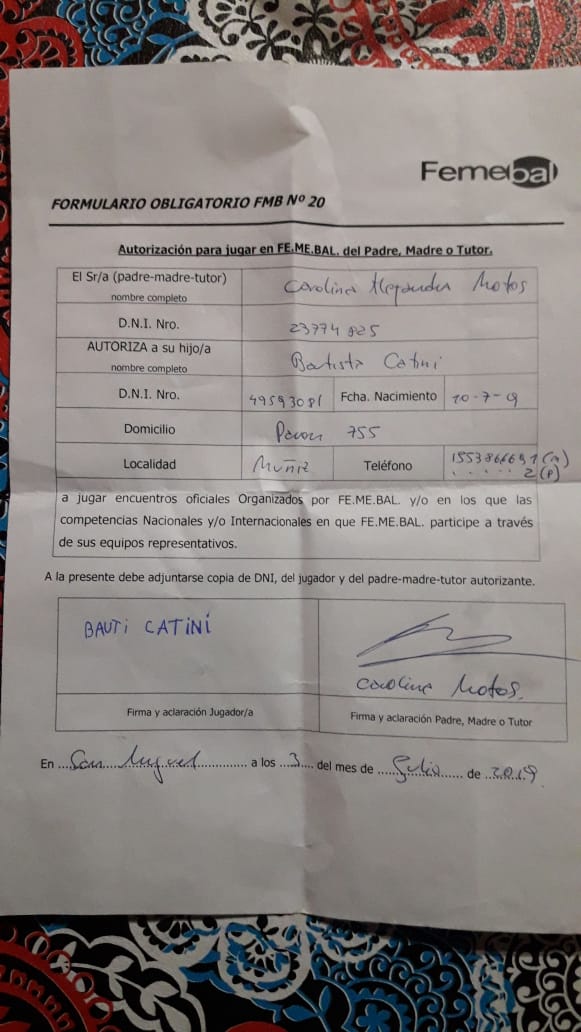 Femebal
FORMULARIO OBLIGATORIO FMB Nº 20
Autorización para jugar en FE.ME.BAL. del Padre, Madre o Tutor.
El Sr/a (padre-madre-tutor)
nombre completo
Carolina Alejandra Motos
D.N.I. Nro.
23774825
AUTORIZA a su hijo/a
nombre completo
Bautista Catini
D.N.I. Nro.
49593081
Fcha. Nacimiento
10-7-09
Domicilio
Pavon 755
Localidad
Muñiz
Teléfono
(m)
2(P)
a jugar encuentros oficiales Organizados por FE.ME.BAL. y/o en los que las
competencias Nacionales y/o Internacionales en que FE.ME.BAL. participe a través
de sus equipos representativos.
A la presente debe adjuntarse copia de DNI, del jugador y del padre-madre-tutor autorizante.
BAUTI CATINI
Carolina Motos.
Firma y aclaración Jugador/a
Firma y aclaración Padre, Madre o Tutor
En ...San Miguel... a los ...3... del mes de ...Julio... de ..2019.